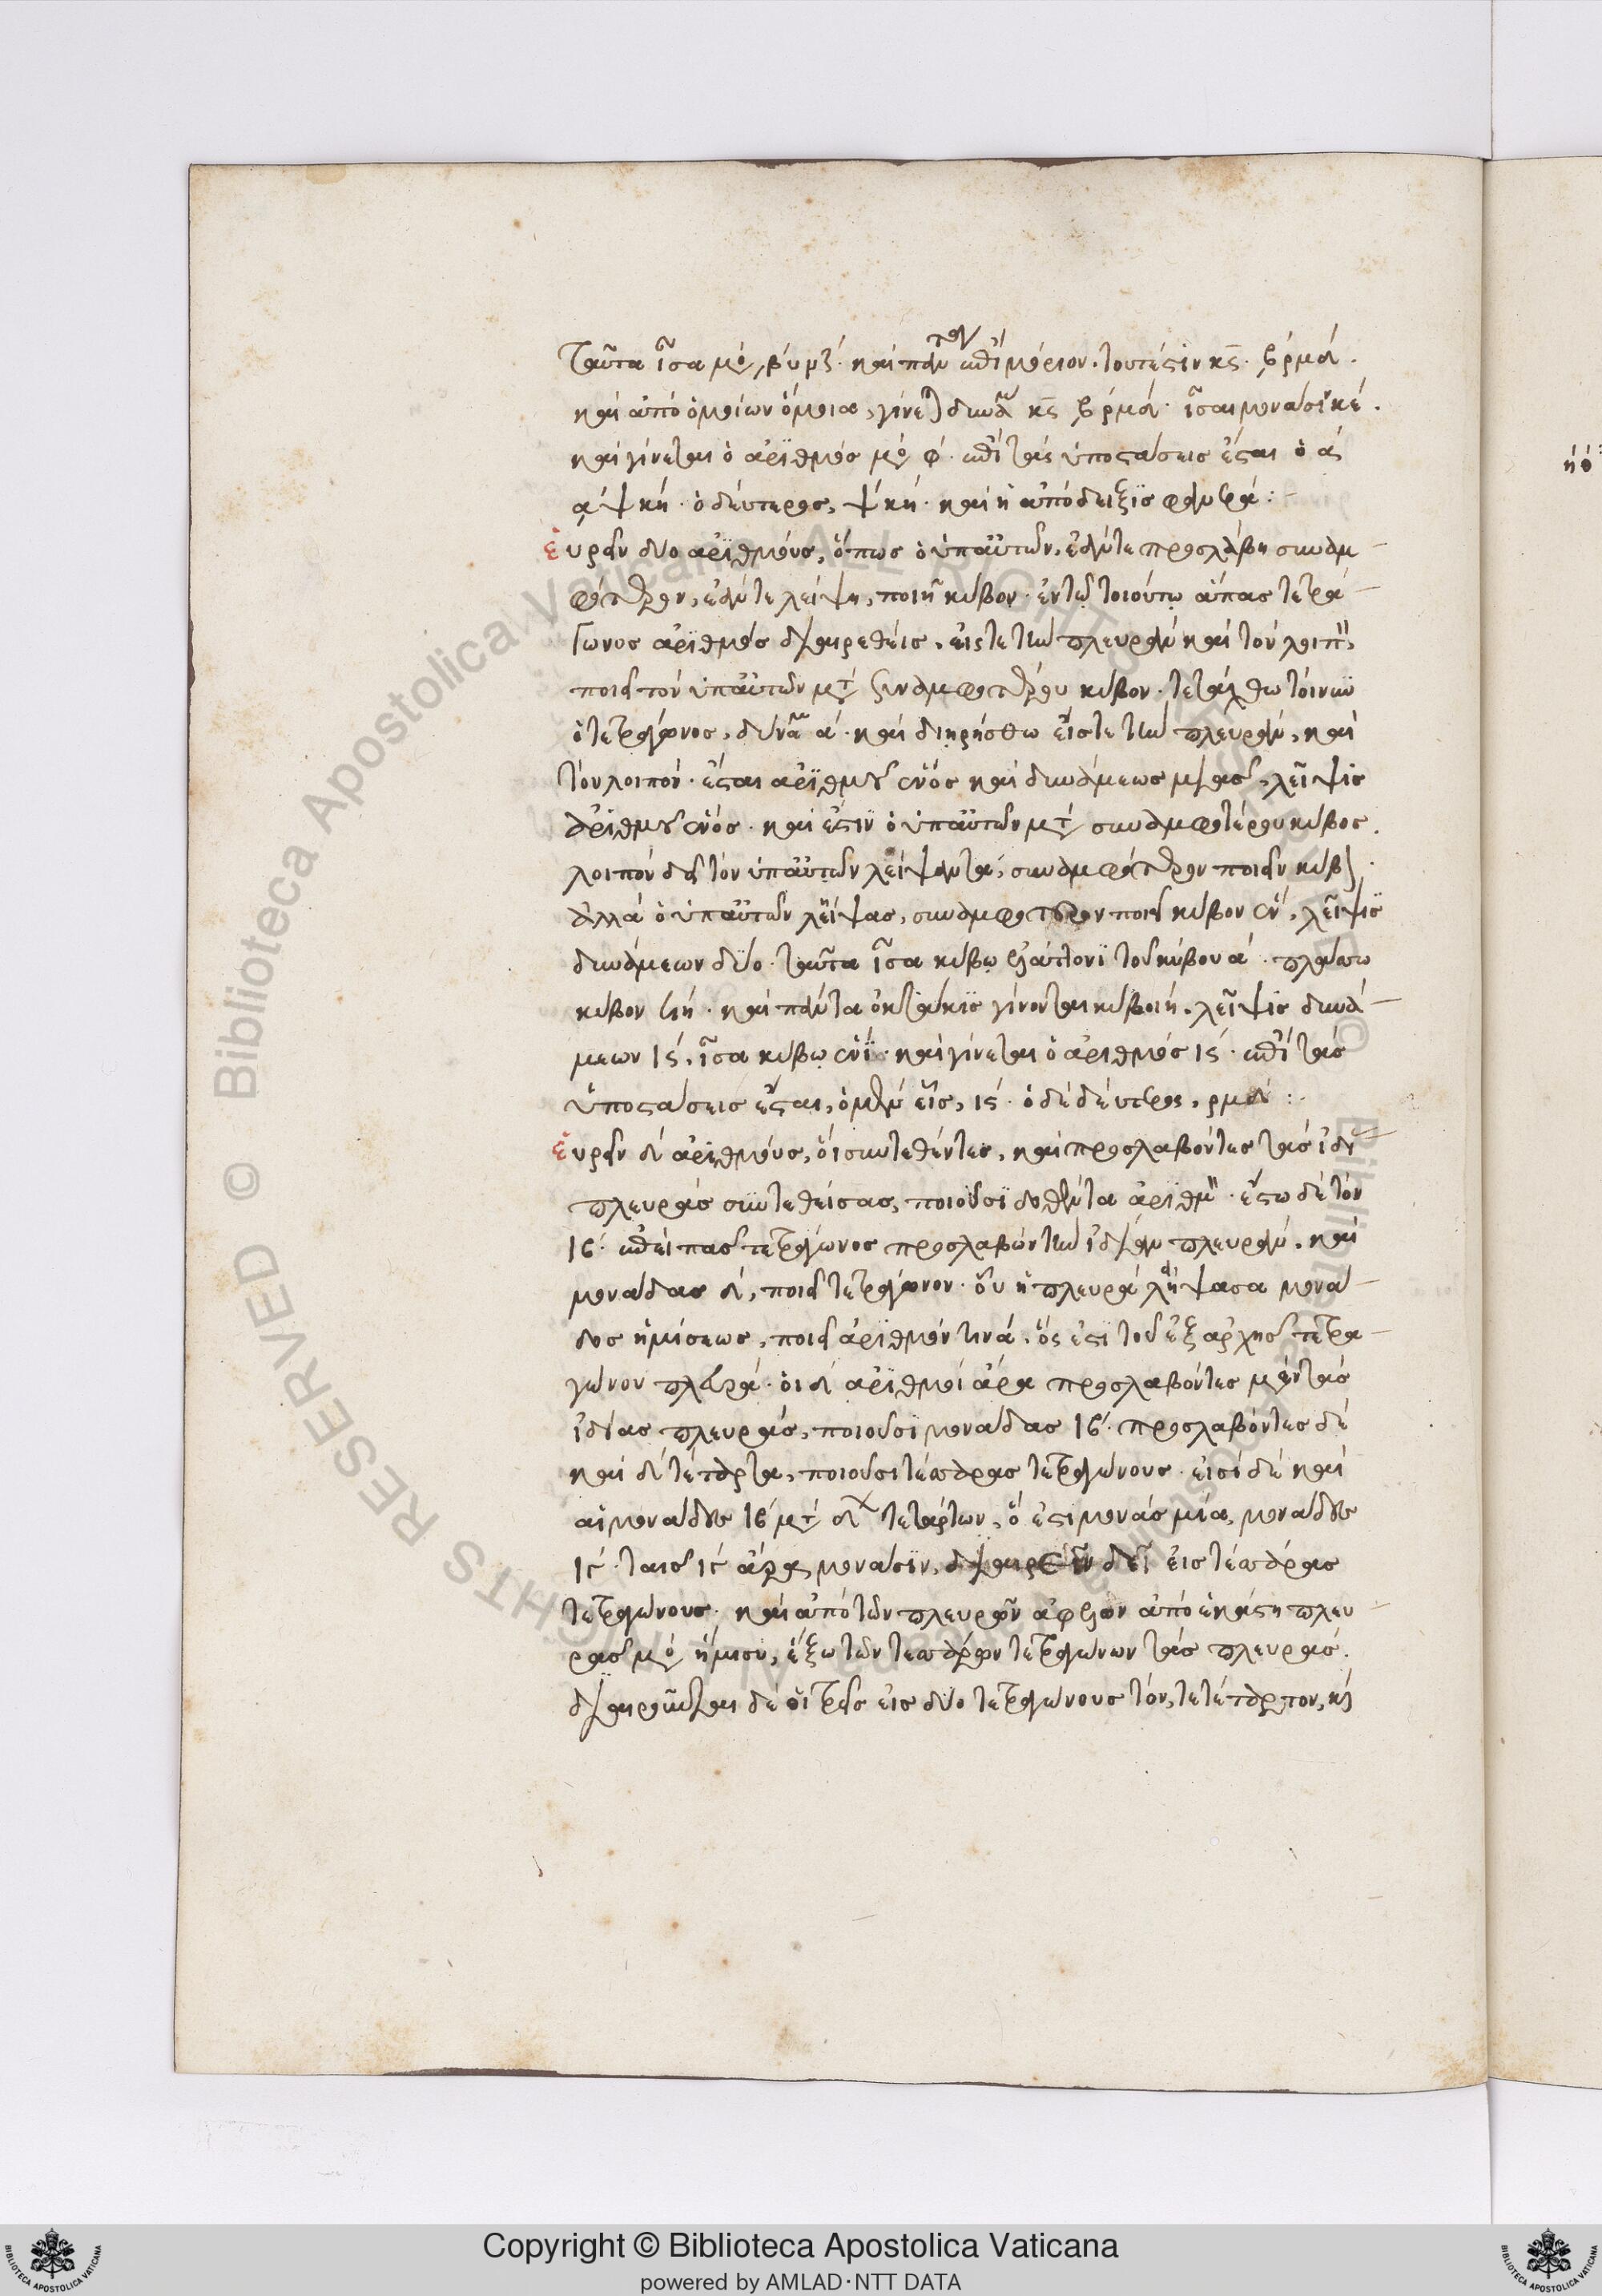 ταῦτα ἴσα μο ͵βυμζ· καὶ πάντα ἐπὶ τὸ μόριον· τουτέστιν κϛ· ͵βρμδ·
καὶ ἀπὸ ὁμοίων ὅμοια, γίνεται δυνάμ κϛ ͵βρμδ· ἴσαι μονάσι κε·
καὶ γίνεται ὁ ἀριθμὸς μο φ· ἐπὶ τὰς ὑποστάσεις ἔσται ὁ α
͵αψκη· ὁ δεύτερος, ψκη· καὶ ἡ ἀπόδειξις φανερά:-
εὑρεῖν δύο ἀριθμοὺς, ὅπως ὁ ὑπ' αὐτῶν, ἐάν τε προσλάβη συναμ-
φότερον, ἐάν τε λείψη, ποιῆ κύβον· ἐν τῷ τοιούτῳ ἅπας τετρά-
γωνος ἀριθμὸς διαιρεθεὶς, εἴς τε τὴν πλευρὰν καὶ τὸν λοιπ,
ποιεῖ τὸν ὑπ' αὐτῶν μετ συναμφοτέρου κύβον· τετάχθω τοίνυν
ὁ τετράγωνος, δυνάμ α· καὶ διηρήσθω εἴς τε τὴν πλευρὰν, καὶ
τὸν λοιπόν· ἔσται ἀριθμοῦ ἑνὸς καὶ δυνάμεως μιᾶς, λεῖψις
ἀριθμοῦ ἑνός· καὶ ἔστιν ὁ ὑπ' αὐτῶν μετ συναμφοτέρου κύβος·
λοιπὸν δεῖ τὸν ὑπ' αὐτῶν λείψαντα, συναμφότερον ποιεῖν κύβ·
ἀλλὰ ὁ ὑπ' αὐτῶν λείψας, συναμφότερον ποιεῖ κύβον ἕν, λεῖψις
δυνάμεων δύο· ταῦτα ἴσα κύβῳ ἐλάττονι τοῦ κύβου α· πλάσσω
κύβον η· καὶ πάντα ὀκτάκις γίνονται κύβοι η, λεῖψις δυνά-
μεων ιϛ, ἴσα κύβῳ ἑνί· καὶ γίνεται ὁ ἀριθμὸς ιϛ· ἐπὶ τὰς
ὑποστάσεις ἔσται, ὁ μὲν εἷς, ιϛ· ὁ δὲ δεύτερος, ρμδ:-
εὑρεῖν δ ἀριθμοὺς, οἳ συντεθέντες, καὶ προσλαβόντες τὰς ἰδί
πλευρὰς συντεθείσας, ποιοῦσι δοθέντα ἀριθμ· ἔστω δὲ τὸν
ιβ· ἐπεὶ πᾶς τετράγωνος προσλαβὼν τὴν ἰδίαν πλευρὰν, καὶ
μονάδας δ, ποιεῖ τετράγωνον· οὗ ἡ πλευρὰ λήψασα μονά-
δος ἡμίσεως, ποιεῖ ἀριθμόν τινα, ὅς ἐστι τοῦ ἐξ ἀρχῆς τετρα-
γώνου πλευρά· οἱ δ ἀριθμοὶ ἄρα προσλαβόντες μὲν τὰς
ἰδίας πλευρὰς, ποιοῦσι μονάδας ιβ· προσλαβόντες δὲ
καὶ δ τέταρτα, ποιοῦσι τέσσαρας τετραγώνους· εἰσὶ δὲ καὶ
αἱ μονάδες ιβ μετ δ τετάρτων, ὅ ἐστι μονὰς μία, μονάδες
ιγ· ταῖς ιγ ἄρα μονάσιν, διαιρεῖν δεῖ εἰς τέσσαρας
τετραγώνους· καὶ ἀπὸ τῶν πλευρῶν ἀφελὼν ἀπὸ ἑκάστη πλευ-
ρᾶς μο ἥμισυ, ἕξω τῶν τεσσάρων τετραγώνων τὰς πλευράς·
διαιροῦνται δὲ οἱ τρεῖς εἰς δύο τετραγώνους τόν, τε τέταρτον, καὶ